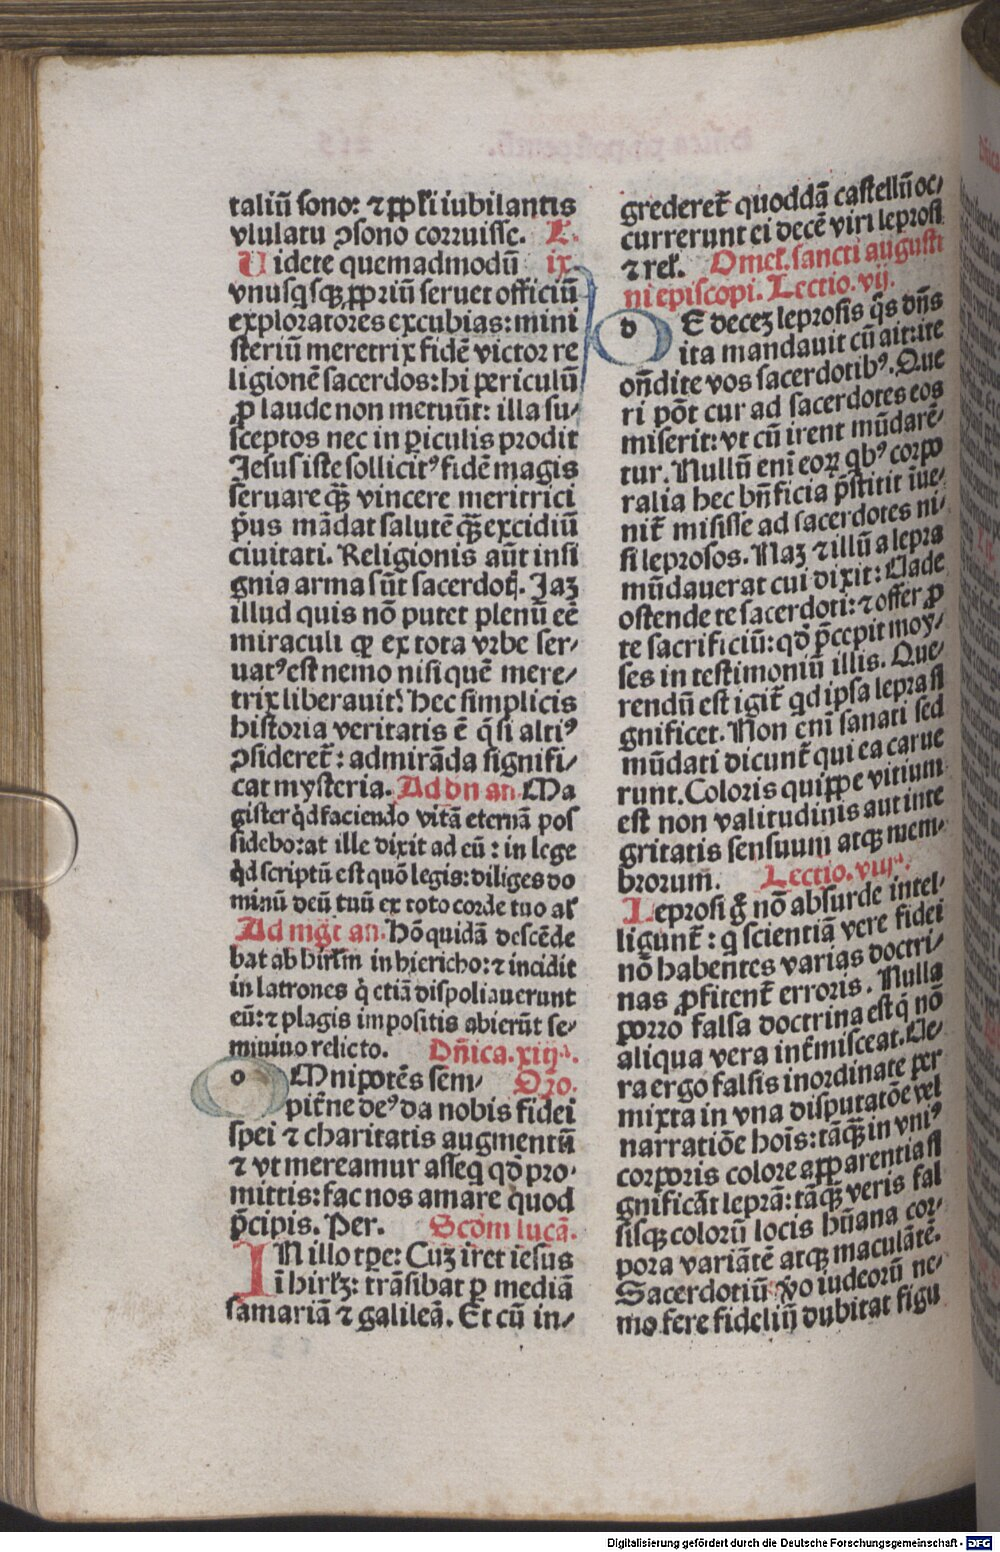 taliū sono: ⁊ ꝓpl̄i iubilantis
vlulatu ↄsono corruisse. L.
Uidete quemadmodū ix.
vnusqͥsqꝫ ꝓpriū seruet officiū
exploratores excubias: mini
steriū meretrix fidē victor re
ligionē sacerdos: hi periculū
ꝓ laude non metuūt: illa su⸗
sceptos nec in ꝑiculis prodit
Jesus iste sollicitꝰ fidē magis
seruare qꝫ̄ vincere meritrici
p̄us mādat salutē qꝫ̄ excidiū
ciuitati. Religionis aūt insi
gnia arma sūt sacerdoꝝ. Jaꝫ
illud quis nō putet plenū eē
miraculi ꝙ ex tota vrbe ser⸗
uatꝰ est nemo nisi quē mere⸗
trix liberauit? hec simplicis
historia veritatis ē qͥ si altiꝰ
ↄsideret̄: admirāda signifi⸗
cat mysteria. Ad bn̄ an. Ma
gister qͥd faciendo vitā eternā pos
sidebo: at ille dixit ad eū: in lege
qͥd scriptū est quō legis: diliges do
minū deū tuū ex toto corde tuo al̄
Ad mgt̄ an. Hō quidā descēde
bat ab hirlm̄ in hiericho: ⁊ incidit
in latrones qͥ etiā dispoliauerunt
eū: ⁊ plagis impositis abierūt se⸗
miuiuo relicto. Dn̄ica. xiij.
OMnipotēs sem⸗ Oro.
pit̄ne deꝰ da nobis fidei
spei ⁊ charitatis augmentū
⁊ vt mereamur asseqͥ qd̄ pro⸗
mittis: fac nos amare quod
p̄cipis. Per. Scd̄m lucā.
IN illo tꝑe: Cuꝫ iret iesus
ī hirlꝫ: trāsibat ꝑ mediā
samariā ⁊ galileā. Et cū in⸗
grederet̄ quoddā castellū oc⸗
currerunt ei decē viri leprosi
⁊ rel̄. Omel̄. sancti augusti
ni episcopi. Lectio. vij.
DE deceꝫ leprosis qͦs dn̄s
ita mandauit cū ait: ite
on̄dite vos sacerdotibꝰ. Que
ri pōt cur ad sacerdotes eos
miserit: vt cū irent mūdarē⸗
tur. Nullū enī eoꝝ qͥbꝰ corpo
ralia hec bn̄ficia p̄stitit īue⸗
nit̄ misisse ad sacerdotes ni⸗
si leprosos. Naꝫ ⁊ illū a lepra
mūdauerat cui dixit: Uade
ostende te sacerdoti: ⁊ offer ꝓ
te sacrificiū: qd̄ p̄cepit moy⸗
ses in testimoniū illis. Que⸗
rendū est igit̄ qͥd ipsa lepra si
gnificet. Non enī sanati sed
mūdati dicunt̄ qui ea carue
runt. Coloris quippe vitium
est non valitudinis aut inte
gritatis sensuum atqꝫ mem⸗
brorum. Lectio. viijª.
Leprosi gͦ nō absurde intel⸗
ligunt̄: qͥ scientiā vere fidei
nō habentes varias doctri⸗
nas ꝓfitent̄ erroris. Nulla
porro falsa doctrina est qͥ nō
aliqua vera int̄misceat. Ue⸗
ra ergo falsis inordinate per
mixta in vna disputatōe vel
narratiōe hoīs: tāqꝫ̄ in vniꝰ
corporis colore apparentia si
gnificāt leprā: tāqꝫ̄ veris fal
sisqꝫ colorū locis hūana cor⸗
pora variātē atqꝫ maculātē.
Sacerdotiū ꝟo iudeorū ne⸗
mo fere fideliū dubitat figu
Digitalisierung gefördert durch die Deutsche Forschungsgemeinschaft - DFG